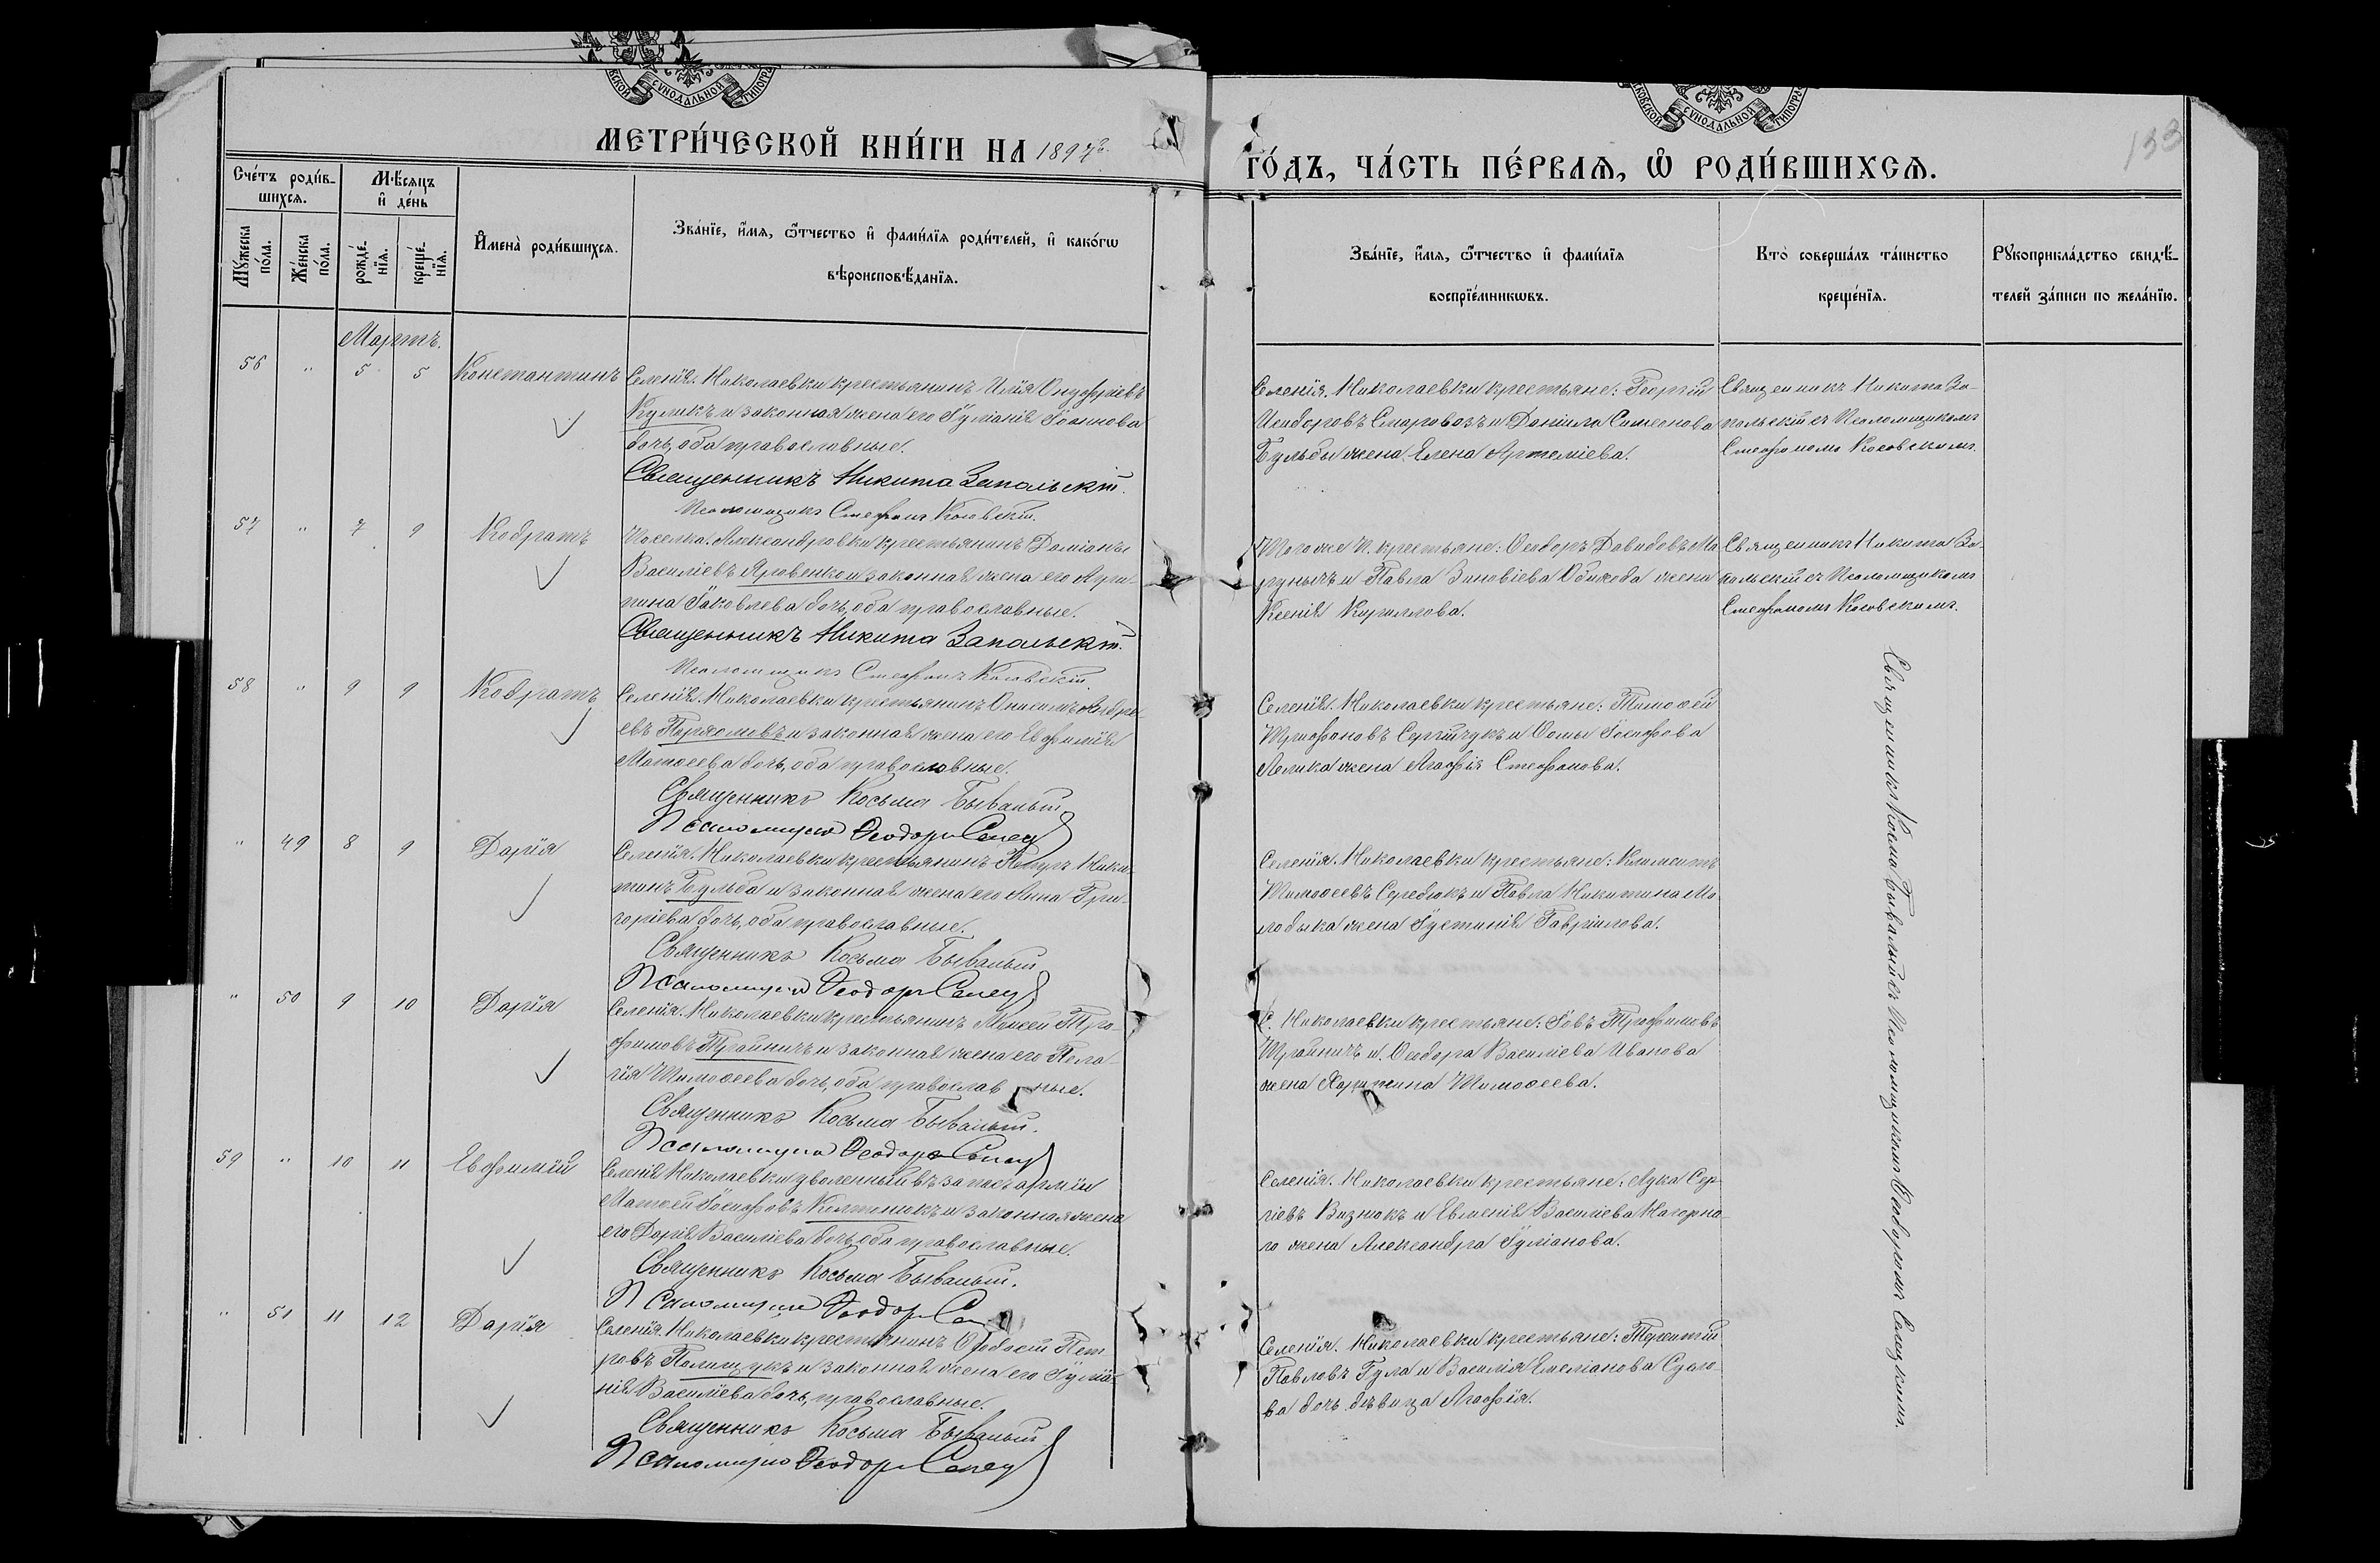 МЕТРИ́ЧЕСКОЙ КНИ́ГИ НА 1897й
ГО́ДЪ, ЧА́СТЬ ПЕ́РВАѦ, Ѽ РОДИ́ВШИХСѦ.
133
Сче́тъ роди́в-
шихсѧ.
Мꙋ́жеска по́ла.
Же́нска по́ла.
Мѣ́сѧцъ
и҆ де́нь
рожде́-
нїѧ.
креще́-
нїѧ.
И҆мена̀ роди́вшихсѧ.
Зва́нїе, и҆́мѧ, ѻ҆́тчество и҆ фами́лїѧ роди́телей, и҆ како́гѡ
вѣроисповѣ́данїѧ.
Зва́нїе, и҆́мѧ, ѻ҆́тчество и҆ фами́лїѧ
воспрїе́мникѡвъ.
Кто̀ соверша́лъ та́инство
креще́нїѧ.
Рꙋкоприкла́дство свидѣ́-
телей за́писи по жела́нїю.
Мартъ.
56 " 5 5 Константинъ
Селенія Николаевки крестьянинъ Илія Онуфріевъ
Куликъ и законная жена его Іуліанія Іоаннова
дочь, оба православные.
Священникъ Никита Запольскій.
Псаломщикъ Стефанъ Косовскій.
Селенія Николаевки крестьяне: Георгій
Исидоровъ Смаровозъ и Даніила Симеонова
Бульбы жена Елена Артеміева.
Священникъ Никита За-
польскій съ Псаломщикомъ
Стефаномъ Косовскимъ.
57 " 7 9 Кодратъ
Поселка Александровки крестьянинъ Даміанъ
Василіевъ Яровенко и законная жена его Агри-
пина Іаковлева дочь, оба православные.
Священникъ Никита Запольскій.
Псаломщикъ Стефанъ Косовскій.
Того же П. крестьяне: Ѳеодоръ Давидовъ Ма-
рунычъ и Павла Зиновіева Обжода жена
Ксенія Кириллова.
Священникъ Никита За-
польскій съ Псаломщикомъ
Стефаномъ Косовскимъ.
58 " 9 9 Кодратъ
Селенія Николаевки крестьянинъ Онисимъ Андре-
евъ Пержомовъ и законная жена его Евфимія
Матѳеева дочь, оба православные.
Священникъ Косьма Бывалый
Псаломщикъ Ѳеодоръ Сенец
Селенія Николаевки крестьяне: Тимоѳей
Трифоновъ Сергійчукъ и Ѳомы Іосифова
Лелика жена Агафія Стефанова.
Священникъ Косма Бывалый съ Псаломщикомъ Ѳеодоромъ Сенецкимъ.
" 49 8 9 Дарія
Селенія Николаевки крестьянинъ Петръ Ники-
тинъ Бульба и законная жена его Анна Гри-
горіева дочь, оба православные.
Священникъ Косьма Бывалый
Псаломщикъ Ѳеодоръ Сенец
Селенія Николаевки крестьяне: Климентъ
Тимоѳеевъ Середюкъ и Павла Никитина Мо-
лодыка жена Іустинія Гавріилова.
" 50 9 10 Дарія
Селенія Николаевки крестьянинъ Моисей Тро-
фимовъ Трайничъ и законная жена его Пела-
гія Тимоѳеева дочь, оба православные.
Священникъ Косьма Бывалый.
Псаломщикъ Ѳеодоръ Сенец
С. Николаевки крестьяне: Іовъ Трофимовъ
Трайничъ и Ѳеодора Василіева Иванова
жена Харитина Тимоѳеева.
59 " 10 11 Евфимій
Селенія Николаевки уволенный въ запасъ арміи
Матѳей Іосифовъ Келтенюкъ и законная жена
его Дарія Василіева дочь, оба православные.
Священникъ Косьма Бывалый.
Псаломщикъ Ѳеодоръ
Селенія Николаевки крестьяне: Лука Сер-
гіевъ Визнюкъ и Евменія Василіева Нагорна-
го жена Александра Іуліанова.
" 51 11 12 Дарія
Селенія Николаевки крестьянинъ Ѳеодосій Пет-
ровъ Полищукъ и законная жена его Іуліа-
нія Василіева дочь, православные.
Священникъ Косьма Бывалый
Псаломщикъ Ѳеодоръ Сенец
Селенія Николаевки крестьяне: Терентій
Павловъ Гула и Василія Емеліанова Суно-
ва дочь девица Агафія.